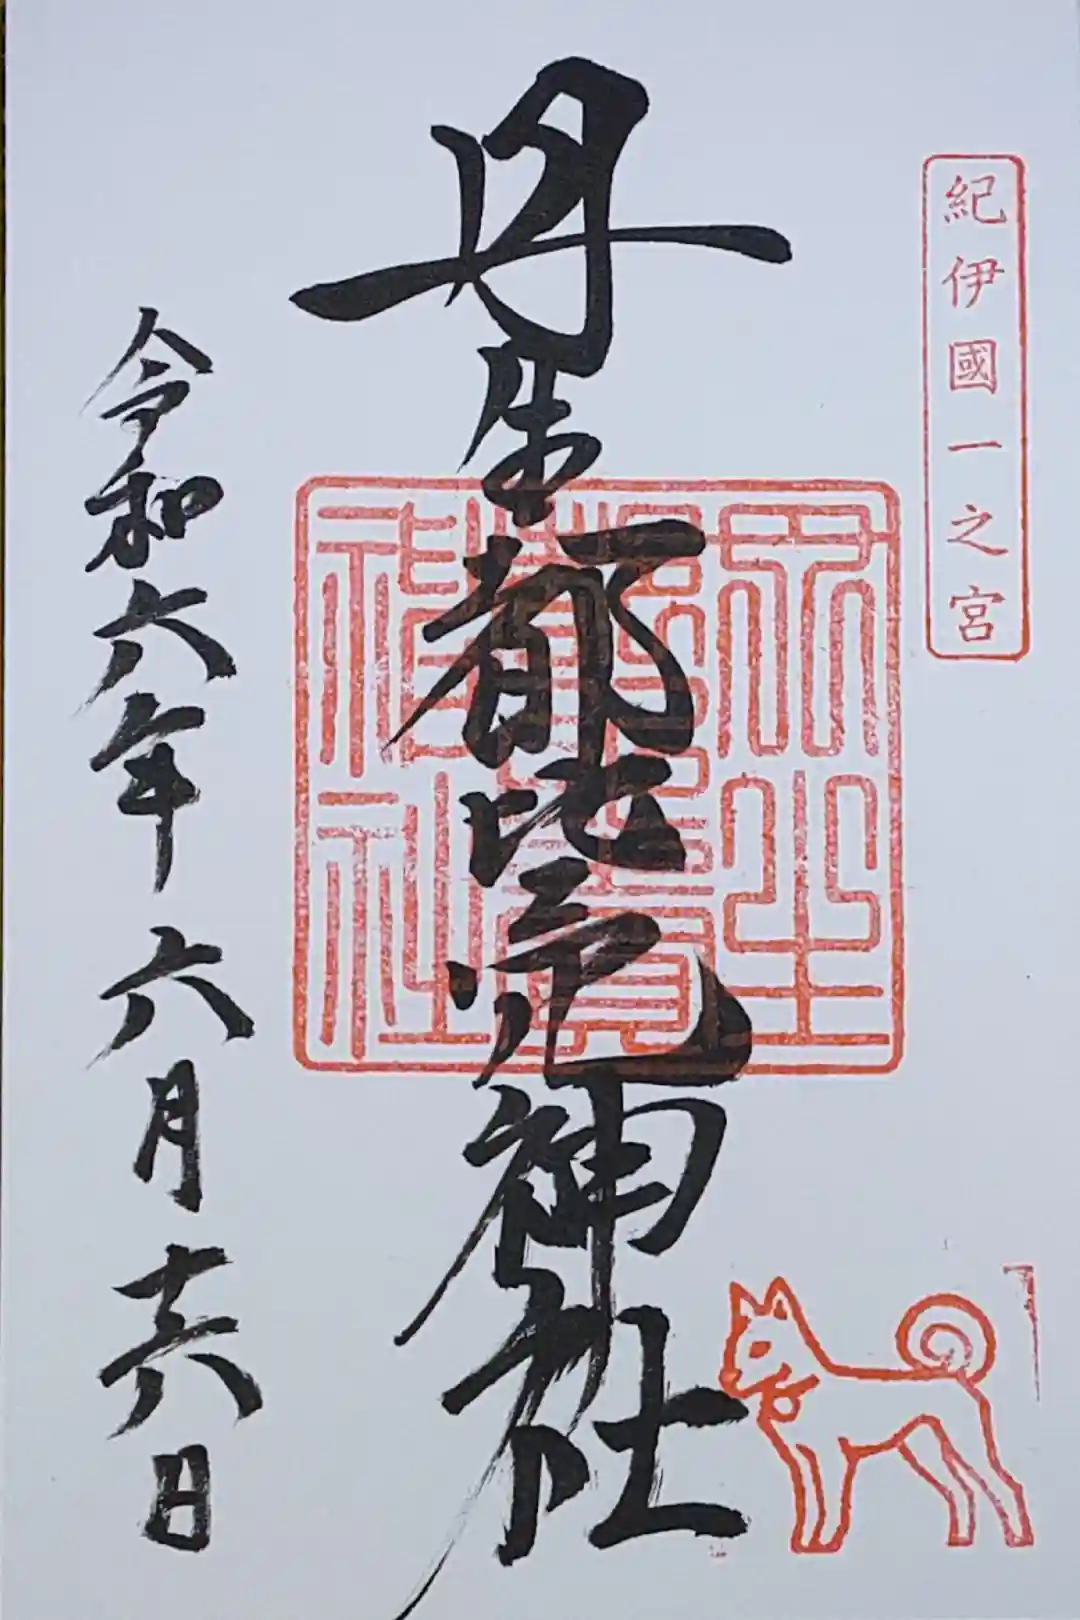 紀伊國一之宮
丹生都比売神社
丹生
都比賣
神社
令和六年六月十六日